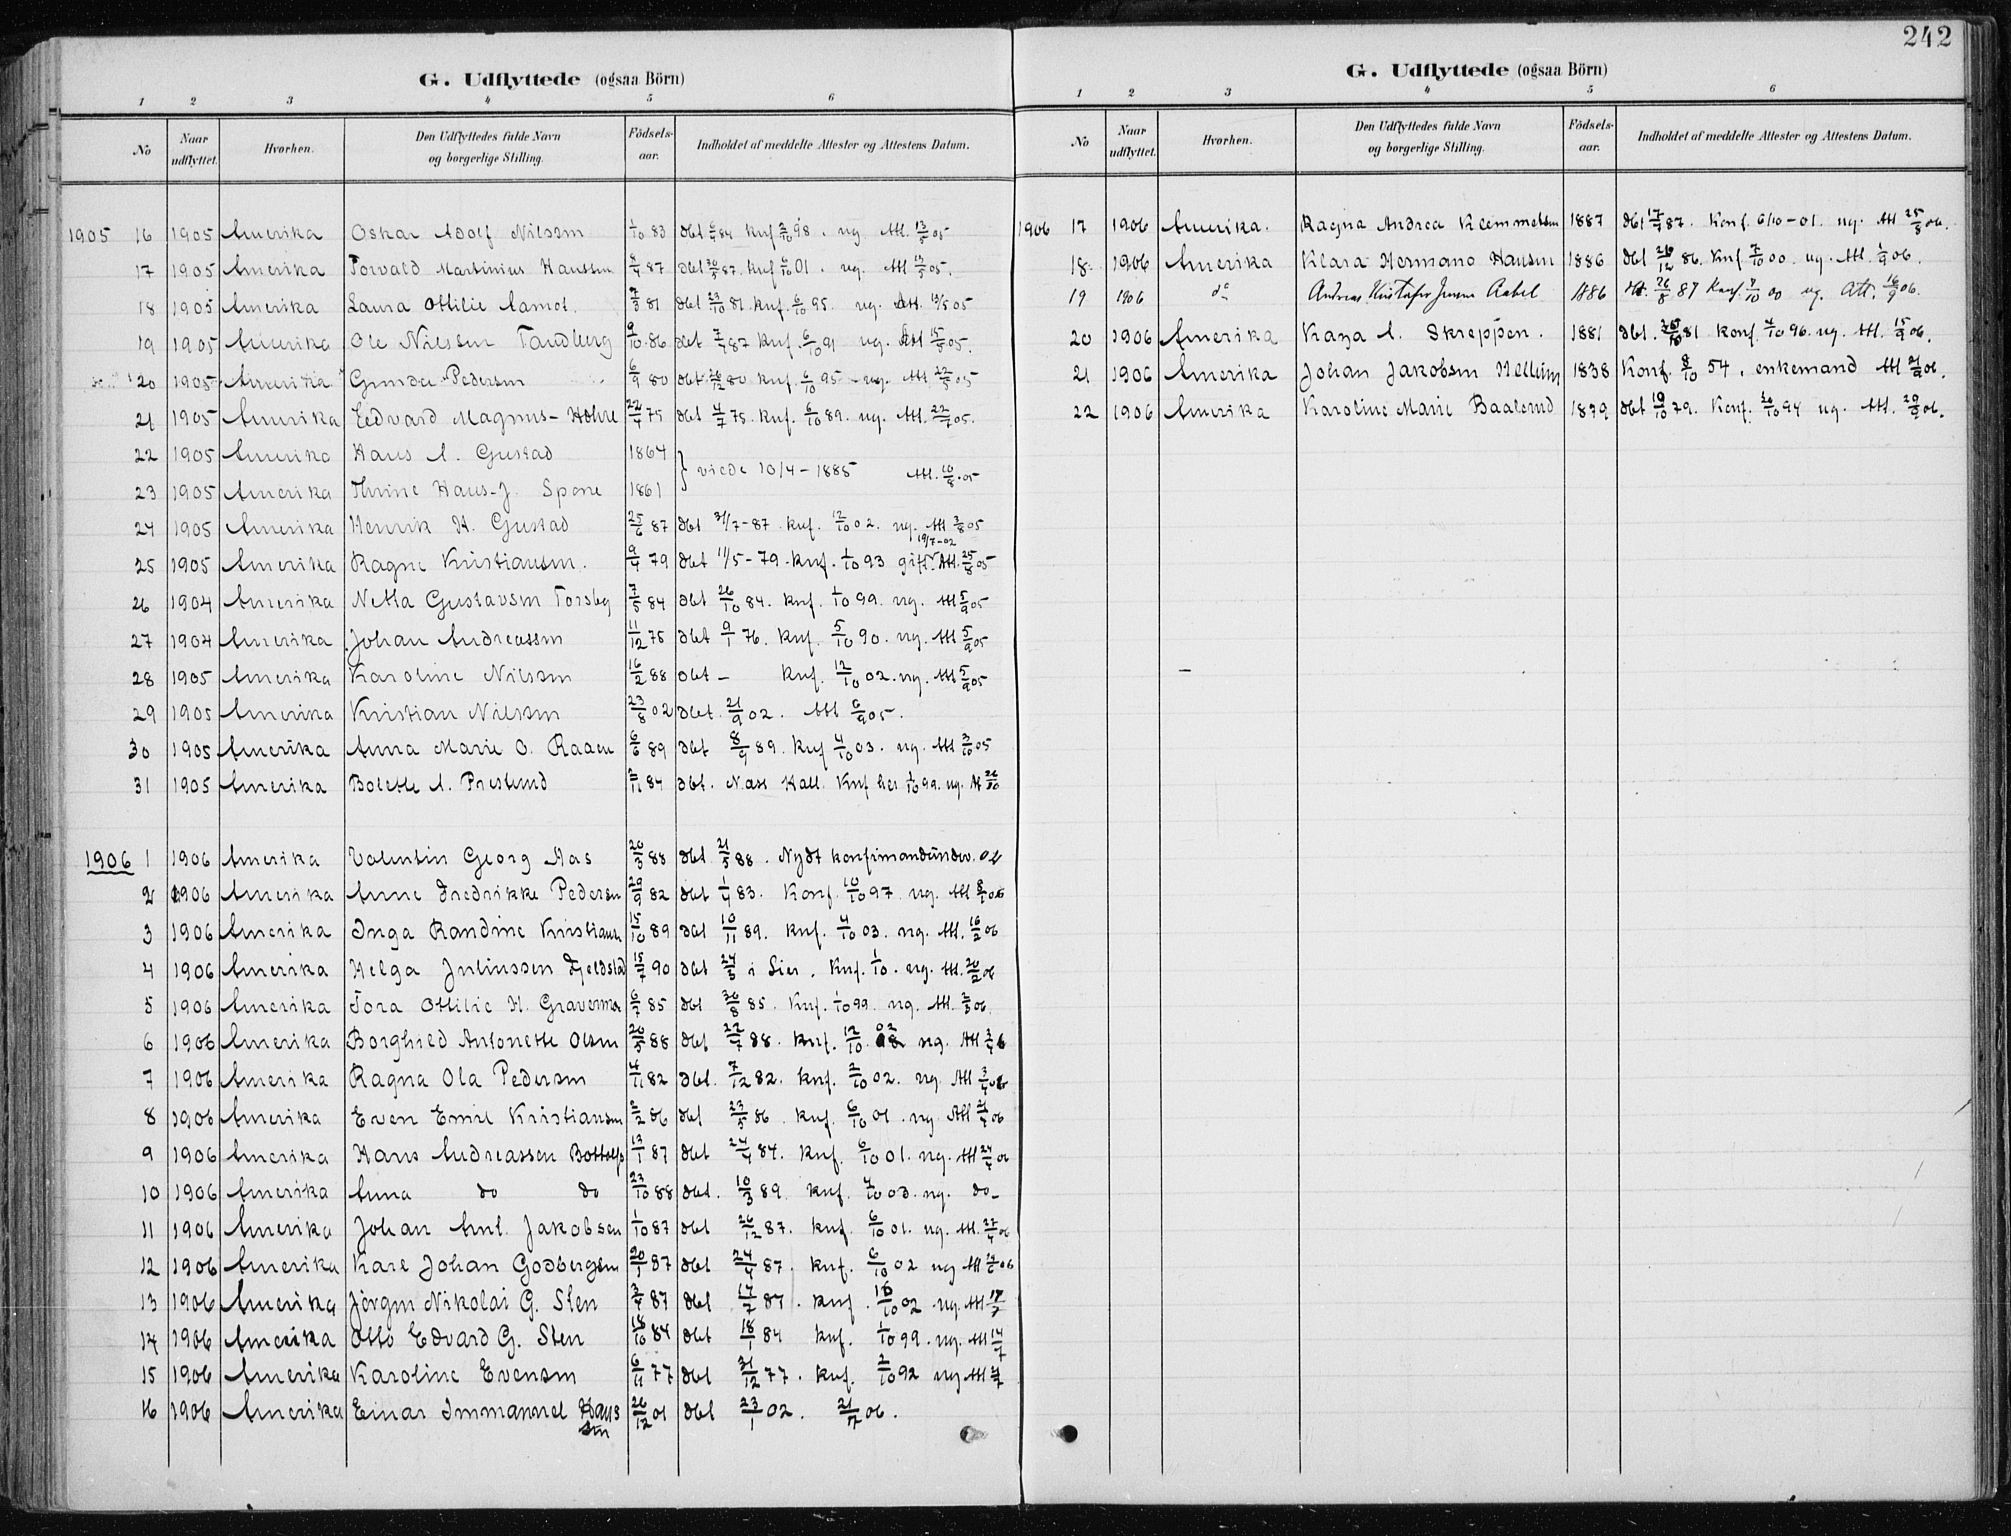 242
G. Udflyttede (ogsaa Börn)
1 2 3 4 5 6
No Naar udflyttet. Hvorhen. Den Udflyttedes fulde Navn og borgerlige Stilling. Födsels-aar. Indholdet af meddelte Attester og Attestens Datum.
1905 16 1905 Amerika Oskar Adolf Nilssen 1/10 83 dbt 6/4 84 knf 2/10 98. ng. Att. 13/5 05
17 1905 Amerika Torvald Martinius Hanssen 4/4 87 dbt 30/5 87. knf 6/10 01. ng. Att 13/5 05.
18 1905 Amerika Laura Ottilie Aamot. 7/3 81 dbt 23/10 81. knf. 6/10 95. ng. Att. 13/5 05
19 1905 Amerika Ole Nilssen Tandberg 9/10 86 dbt 7/4 87 knf. 6/10 91 ng. Att 15/5 05.
20 1905 Amerika Gunda Pedersen 6/9 80 dbt 26/12 80 knf. 6/10 95 - ng. Att 22/5 05
21 1905 Amerika Edvard Magnus Hohle 22/4 75 dbt 4/7 75. knf. 6/10 89. ng. Att. 22/7 05.
22 1905 Amerika Hans A. Gustad 1864
} viede 10/4-1885 Att. 10/8 05
23 1905 Amerika Thrine Hans-J. Spone 1861
24 1905 Amerika Henrik H. Gustad 25/6 87 dbt 31/7-87. knf. 12/10 02. ng. Att 3/8 05
25 1905 Amerika Ragne Kristiansen. 9/4 79 dbt 11/5-79. knf. 1/10 93 gift 19/7-02 Att. 25/8 05
26 1904 Amerika Netta Gustavsen Torsby 7/5 84 dbt 26/10 84. knf. 1/10 99. ng. Att 5/9 05
27 1904 Amerika Johan Andreassen 11/12 75 dbt 9/1 76. knf. 5/10 90. ng. Att 5/9 05
28 1905 Amerika Karoline Nilssen 16/2 88 dbt - knf. 12/10 02. ng. Att 5/9 05
29 1905 Amerika Kristian Nilssen 23/8 02 dbt. 21/9 02. Att 6/9 05.
30 1905 Amerika Anna Marie O. Raaen 6/6 89 dbt 8/9 89. knf 4/10 03. ng. Att 3/10 05
31 1905 Amerika Bolette A. Prestrud 2/11 84 dbt. Næs Hall. Knf her 1/10 99. ng. At 26/10
1906 1 1906 Amerika Valentin Georg Aas 26/3 88 dbt 21/5 88. Nydt konfirmandunder. 02
2 1906 Amerika Anne Fredrikke Pedersen 29/9 82 dbt 1/4 83. Konf. 10/10 97 ng. Att 8/1 06
3 1906 Amerika Inga Randine Kristiansen 15/10 89 dbt 10/11 89. knf. 4/10 03. ng. Att. 16/2 06
4 1906 Amerika Helga Juliussen Fjeldstad 15/7 90 dbt 24/5 i Lier. Knf. 1/10. ng. Att. 20/2 06
5 1906 Amerika Tora Ottilie H. Graversen 6/7 85 dbt 30/8 85. Knf. 1/10 99. ng. Att. 2/3 06
6 1906 Amerika Borghild Antonette Olsen 20/5 88 dbt 22/7 88. knf. 12/10 02 ng. Att 3/4 6
7 1906 Amerika Ragna Ola Pedersen 4/11 82 dbt. 7/12 82. knf. 2/10 02. ng. Att 3/4 06
8 1906 Amerika Even Emil Kristiansen 2/2 86 dbt 23/5 86. knf. 6/10 01. ng Att 21/4 06
9 1906 Amerika Hans Andreassen Bottolfs 13/1 87 dbt 24/4 84. knf. 6/10 01. ng. Att 24/4 06
10 1906 Amerika Anna do do 23/10 88 dbt. 10/3 89. knf. 4/10 03. ng. do-
11 1906 Amerika Johan Ant. Jakobsen 1/10 87 dbt 26/12 87. knf. 6/10 01. ng. Att. 27/4 06
12 1906 Amerika Karl Johan Godbergsen 20/1 87 dbt 24/4 87. knf. 6/10 02 ng Att 26/6 06
13 1906 Amerika Jörgen Nikolai G. Sten 3/4 87 dbt 17/7 87. knf. 16/10 02 ng. Att 17/7
14 1906 Amerika Otto Edvard G. Sten 18/10 84 dbt 18/1 84 knf. 1/10 99. ng. Att 14/7
15 1906 Amerika Karoline Evensen 6/11 77 dbt 31/12 77. knf. 2/10 92 ng Att
16 1906 Amerika Einar Immanuel Hanssen 26/12 01 dbt 23/1 02. 21/7 06.
G. Udflyttede (ogsaa Börn)
1 2 3 4 5 6
No Naar udflyttet. Hvorhen. Den Udflyttedes fulde Navn og borgerlige Stilling. Födsels-aar. Indholdet af meddelte Attester og Attestens Datum.
1906 17 1906 Amerika. Ragna Andrea Klemmetsen 1887 dbt 17/4 87. Konf. 6/10-01. ng. Att 25/8 06.
18. 1906 Amerika Klara Hermana Hansen 1886 dbt 26/12 86. knf 7/10 00. ng. Att. 1/9 06.
19 1906 do Andreas Gustafer Jensen Aabel 1886 dbt. 26/8 87 Konf. 7/10 00 ng. Att. 16/9 06.
20 1906 Amerika Kaya A. Skreppen. 1881 dbt. 81 konf. 4/10 96. ng. Att. 15/9 06.
21 1906 Amerika Johan Jakobsen Hellum 1838 Konf. 8/10 54. enkemand Att 21/9 06.
22 1906 Amerika Karoline Marie Baalerud 1879 dbt 19/10 79. Konf. 94 ng. Att. 29/9 06.